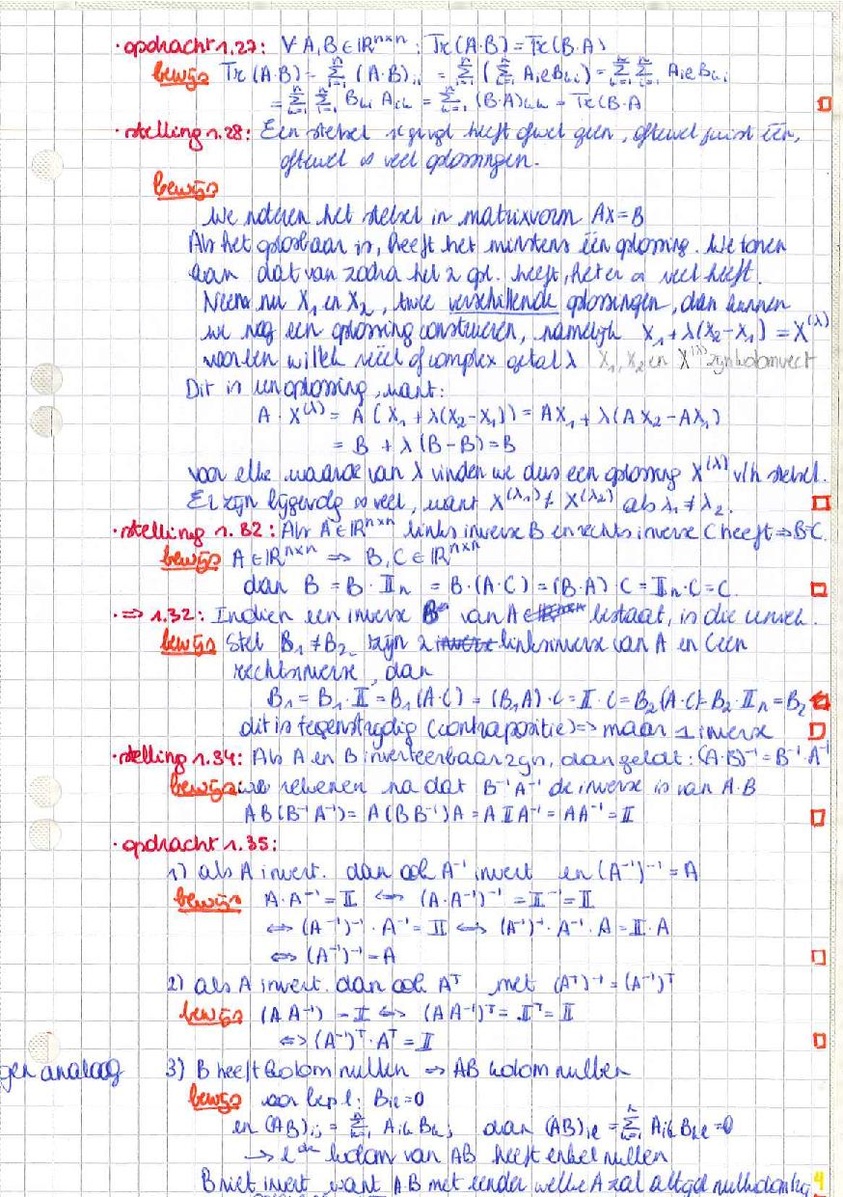 · opdracht 1.27: ∀ A,B ∈ ℝⁿˣⁿ : Tr(A·B) = Tr(B·A)
bewijs Tr(A·B) = Σⁿᵢ₌₁ (A·B)ᵢᵢ = Σⁿᵢ₌₁ (Σⁿₖ₌₁ Aᵢₖ Bₖᵢ) = Σⁿₖ₌₁ Σⁿᵢ₌₁ Aᵢₖ Bₖᵢ
= Σⁿₖ₌₁ Σⁿᵢ₌₁ Bₖᵢ Aᵢₖ = Σⁿₖ₌₁ (B·A)ₖₖ = Tr(B·A □
· stelling 1.28: Een stelsel heeft ofwel geen, oftewel juist één,
oftewel ∞ veel oplossingen.
bewijs
We noteren het stelsel in matrixvorm AX=B
Als het oplosbaar is, heeft het minstens één oplossing. We tonen
aan dat van zodra het 2 opl. heeft, het er ∞ veel heeft.
Neem nu X₁ en X₂, twee verschillende oplossingen, dan kunnen
we nog een oplossing construeren, namelijk X₁ + λ(X₂-X₁) = X^(λ)
voor een willek reëel of complex getal λ X₁, X₂ en X^(λ) zijn kolomvect
Dit is een oplossing, want:
A · X^(λ) = A (X₁ + λ(X₂-X₁)) = AX₁ + λ(AX₂-AX₁)
= B + λ(B-B) = B
voor elke waarde van λ vinden we dus een oplossing X^(λ) v/h stelsel.
Er zijn bijgevolg ∞ veel, want X^(λ₁) ≠ X^(λ₂) als λ₁ ≠ λ₂. □
· stelling 1.32: Als A∈ℝⁿˣⁿ links inverse B en rechts inverse C heeft ⇒ B=C.
bewijs A∈ℝⁿˣⁿ ⇒ B,C ∈ ℝⁿˣⁿ
dan B = B · 𝕀ₙ = B·(A·C) = (B·A)·C = 𝕀ₙ·C = C. □
· ⇒ 1.32: Indien een inverse B van A bestaat, is die uniek.
bewijs Stel B₁ ≠ B₂ zijn 2 linksinverse van A en C een
rechtsinverse, dan
B₁ = B₁·𝕀 = B₁(A·C) = (B₁A)·C = 𝕀·C = B₂(A·C) = B₂·𝕀ₙ = B₂
dit is tegenstrijdig (contrapositie) ⇒ maar 1 inverse □
· stelling 1.34: Als A en B inverteerbaar zijn, dan geldt: (A·B)⁻¹ = B⁻¹·A⁻¹
bewijs: we rekenen na dat B⁻¹A⁻¹ de inverse is van A·B
AB(B⁻¹A⁻¹) = A(BB⁻¹)A = A𝕀A⁻¹ = AA⁻¹ = 𝕀 □
· opdracht 1.35:
1) als A invert. dan ook A⁻¹ invert en (A⁻¹)⁻¹ = A
bewijs A·A⁻¹ = 𝕀 ⇔ (A·A⁻¹)⁻¹ = 𝕀⁻¹ = 𝕀
⇔ (A⁻¹)⁻¹ · A⁻¹ = 𝕀 ⇔ (A⁻¹)⁻¹ · A⁻¹ · A = 𝕀 · A
⇔ (A⁻¹)⁻¹ = A □
2) als A invert. dan ook Aᵀ met (Aᵀ)⁻¹ = (A⁻¹)ᵀ
bewijs (A A⁻¹) = 𝕀 ⇔ (A A⁻¹)ᵀ = 𝕀ᵀ = 𝕀
⇔ (A⁻¹)ᵀ · Aᵀ = 𝕀 □
gen analoog 3) B heeft kolom nullen ⇒ AB kolom nullen
bewijs voor bep l: Bᵢₗ = 0
en (AB)ᵢⱼ = Σⁿₖ₌₁ Aᵢₖ Bₖⱼ dan (AB)ᵢₗ = Σⁿₖ₌₁ Aᵢₖ Bₖₗ = 0
→ lᵈᵉ kolom van AB heeft enkel nullen
B niet invert want AB met eender welke A zal altijd nulkolom 4